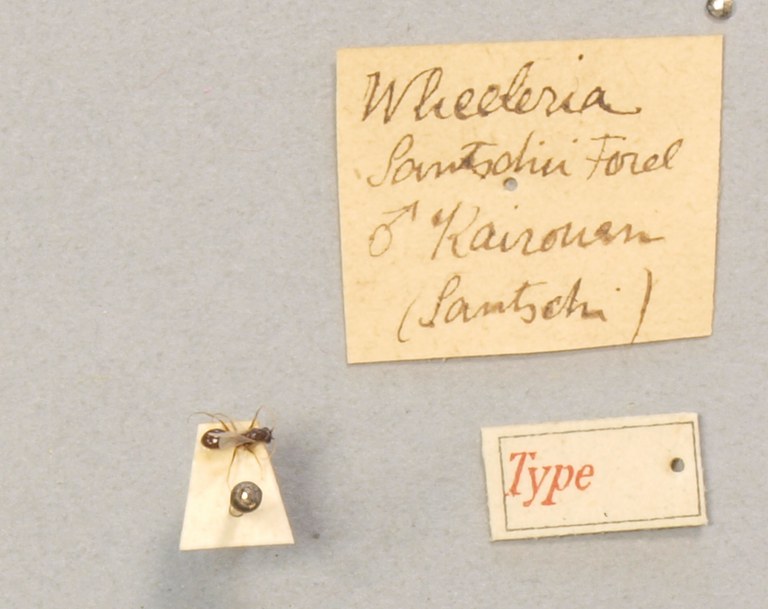 Wheeleria
Santschii Forel
♂ Kairouan
(Santschi)
Type